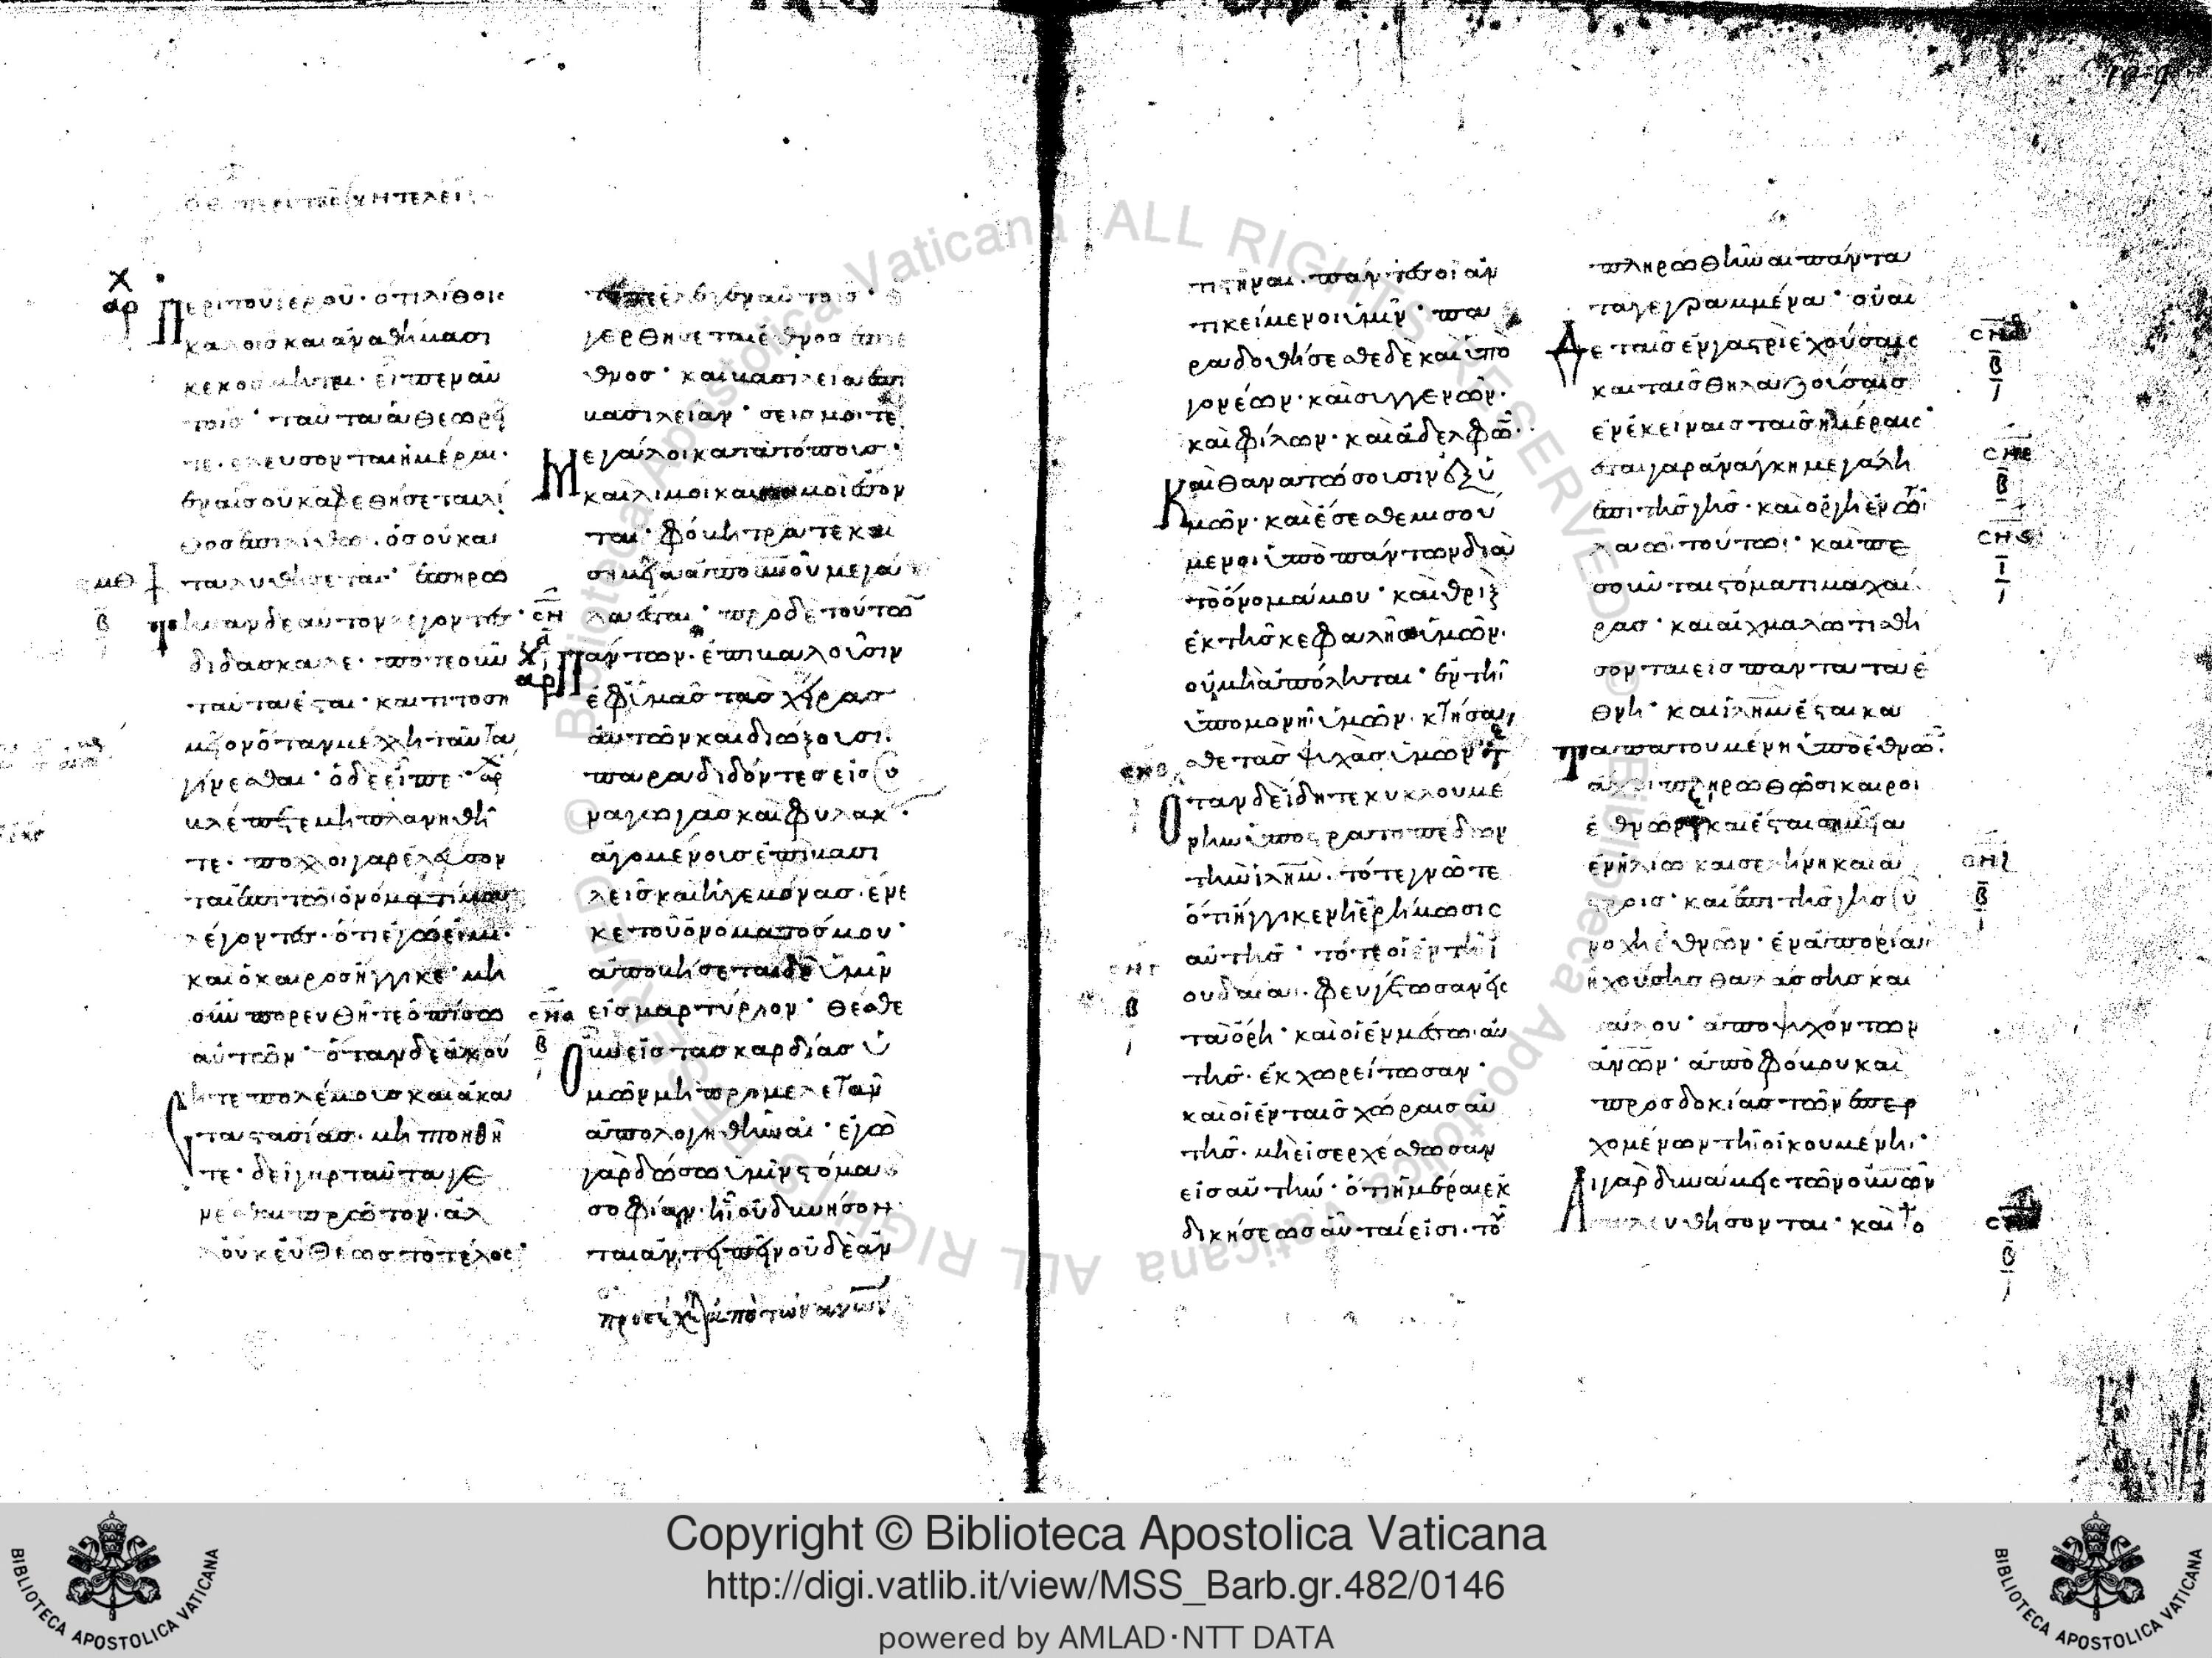 περι του ιερου· οτι λίθοις
καλοῖς και ἀναθήμασι
κεκόσμηται· εἶπεν αὐ
τοῖς· ταῦτα ἃ θεωρεῖ
τε· ελευσονται ημέραι·
ἐν αἷς οὐκ ἀφεθήσεται λί
θος ἐπι λίθω· ὃς οὐ κα
ταλυθήσεται· ἐπηρώ
τησαν δε αυτον λέγοντες·
διδάσκαλε· πότε οὖν
ταῦτα ἔσται· και τι το ση
μεῖον ὅταν μέλλη ταῦτα
γίνεσθαι· ὁ δε εἶπε·
βλέπετε μη πλανηθῆ
τε· πολλοι γαρ ἐλεύσον
ται ἐπι τῶ ὀνόματί μου
λέγοντες· ὅτι ἐγώ εἰμι·
και ὁ καιρος ἤγγικε· μη
οὖν πορευθῆτε ὀπίσω
αὐτῶν· ὅταν δε ἀκού
σητε πολέμους και ἀκα
ταστασίας· μη πτοηθῆ
τε· δεῖ γαρ ταῦτα γε
νέσθαι πρῶτον· ἀλ
λ' οὐκ εὐθέως το τέλος·
γερθήσεται ἔθνος ἐπι ἔ
θνος· και βασιλεία ἐπι
βασιλείαν· σεισμοί τε
Μεγάλοι κατα τόπους·
και λιμοι και λοιμοι ἔσον
ται· φόβητρά τε και
σημεῖα ἀπο οὐνοῦ μεγά
λα ἔσται· προ δε τούτων
Πάντων· ἐπιβαλοῦσιν
ἐφ' ὑμᾶς τας χεῖρας
αὐτῶν και διώξουσι·
παραδιδόντες εἰς συ
ναγωγας και φυλακ
ἀγομένους ἐπι βασι
λεῖς και ἡγεμόνας· ἕνε
κε τοῦ ὀνόματός μου·
ἀποβήσεται δε ὑμῖν
εἰς μαρτύριον· θέσθε
Οὖν εἰς τας καρδίας ὑ
μῶν μη προμελετᾶν
ἀπολογηθῆναι· ἐγω
γαρ δώσω ὑμῖν στόμα
σοφίαν· ἧ οὐ δυνήσον
ται ἀντειπεῖν οὐδε ἀν
τιστῆναι· πάντες οἱ ἀν
τικείμενοι ὑμῖν· πα
ραδοθήσεσθε δε και ὑπο
γονέων· και συγγενῶν·
και φίλων· και ἀδελφῶν·
Και θανατώσουσιν ἐξ ὑ
μῶν· και ἔσεσθε μισού
μενοι ὑπο πάντων δια
το ὄνομά μου· και θριξ
ἐκ τῆς κεφαλῆς ὑμῶν·
οὐ μη ἀπόληται· ἐν τῆ
ὑπομονῆ ὑμῶν· κτήσα
σθε τας ψυχας ὑμῶν
Οταν δε ἴδητε κυκλουμέ
νην ὑπο στρατοπέδων
την ιλημ· τότε γνῶτε
ὅτι ἤγγικεν ἡ ἐρήμωσις
αὐτῆς· τότε οἱ ἐν τῆ ἰ
ουδαία· φευγέτωσαν εἰς
τα ὄρη· και οἱ ἐν μέσω αὐ
τῆς· ἐκχωρείτωσαν·
και οἱ ἐν ταῖς χώραις αὐ
τῆς· μη εἰσερχέσθωσαν
εἰς αὐτήν· ὅτι ἡμέραι ἐκ
δικήσεως αὗταί εἰσι· τοῦ
πληρωθῆναι πάντα
τα γεγραμμένα· οὐαι
Δε ταῖς ἐν γαστρι ἐχούσαις
και ταῖς θηλαζούσαις
ἐν ἐκείναις ταῖς ἡμέραις·
ἔσται γαρ ἀνάγκη μεγάλη
ἐπι τῆς γῆς· και ὀργη ἐν τῶ
λαῶ τούτω· και πε
σοῦνται στόματι μαχαί
ρας· και αἰχμαλωτισθή
σονται εἰς πάντα τα ἔ
θνη· και ιλημ ἔσται κα
πατουμένη ὑπο ἐθνῶν·
ἄχρι πληρωθῶσι καιροι
ἐθνῶν· και ἔσται σημεῖα
ἐν ἡλίω και σελήνη και ἄ
στροις· και ἐπι τῆς γῆς συ
νοχη ἐθνῶν· ἐν ἀπορία
ἠχούσης θαλάσσης και
σάλου· ἀποψυχόντων
ανων· ἀπο φόβου και
προσδοκίας τῶν ἐπερ
χομένων τῆ οἰκουμένη·
Αι γαρ δυνάμεις τῶν οὐνῶν
σαλευθήσονται· και το
Copyright © Biblioteca Apostolica Vaticana
http://digi.vatlib.it/view/MSS_Barb.gr.482/0146
powered by AMLAD·NTT DATA
BIBLIOTECA APOSTOLICA VATICANA
BIBLIOTECA APOSTOLICA VATICANA